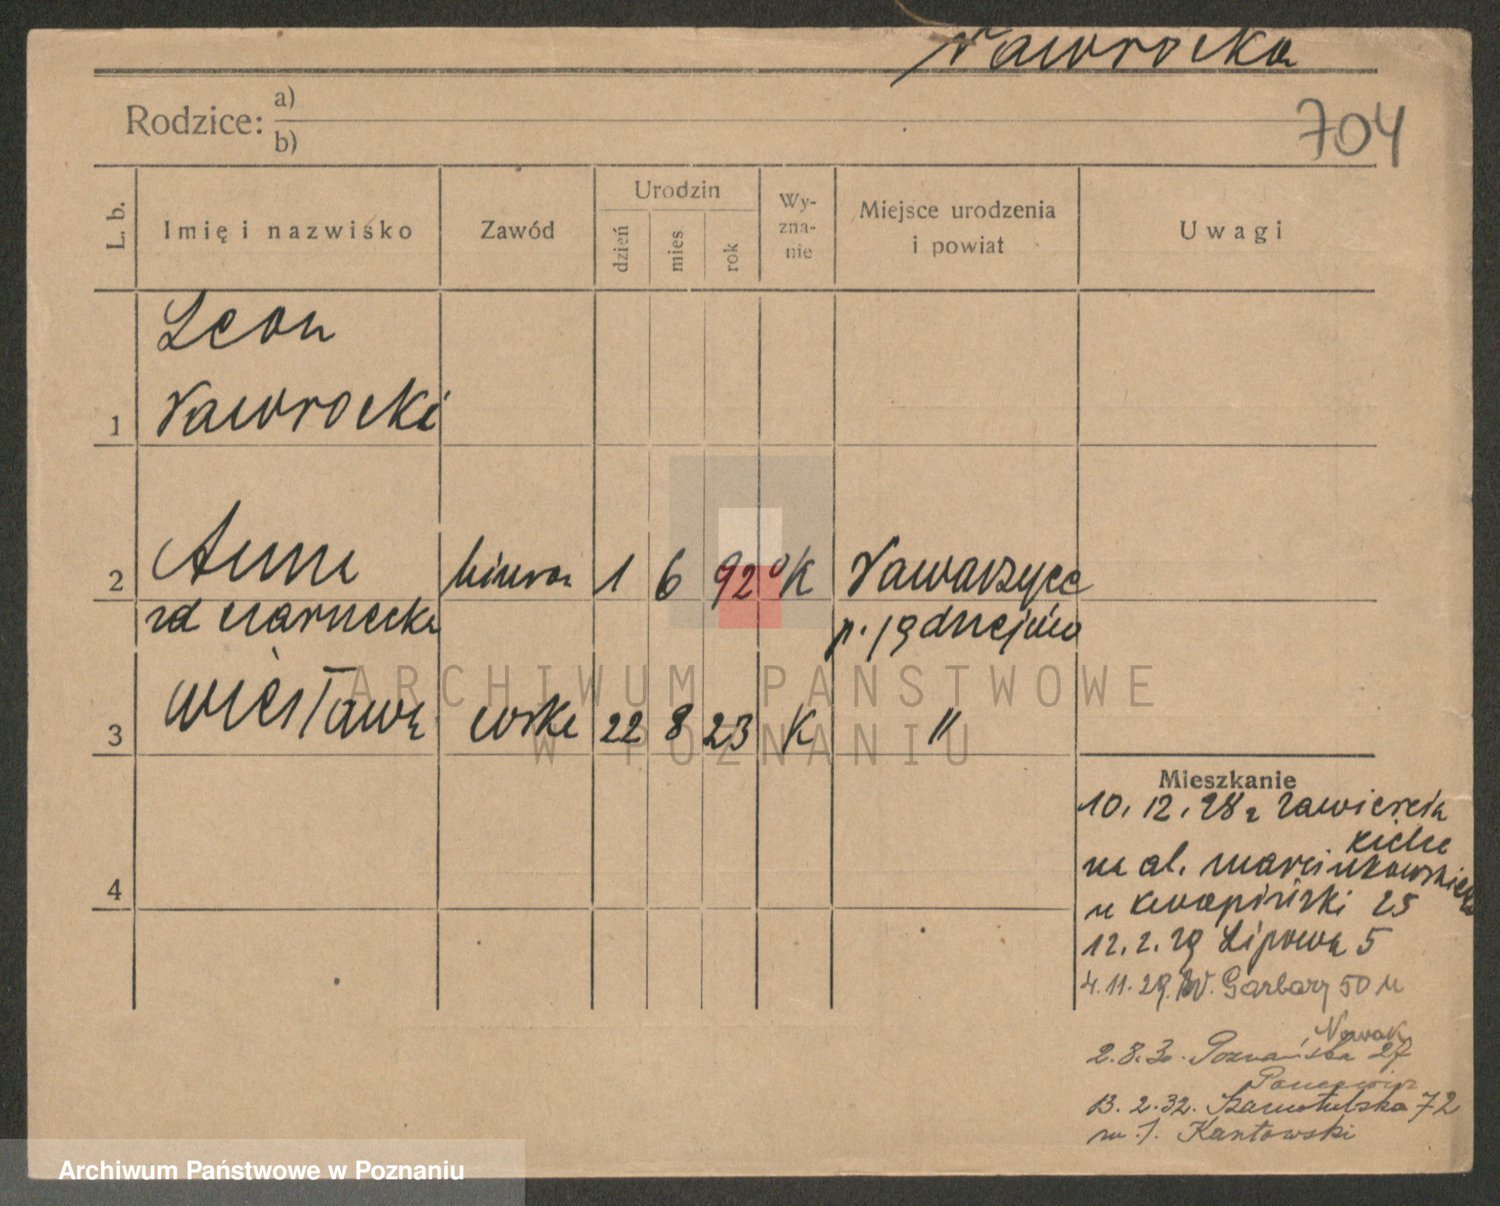 Nawrocka
704
Rodzice: a)
b)
L. b.
Imię i nazwisko
Zawód
Urodzin
dzień
mies
rok
Wy-
zna-
nie
Miejsce urodzenia
i powiat
Uwagi
Leon
1 Nawrocki
2 Anna biura 1 6 92 K Nawarzyce
zd Czarnecka p. Jędrzejów
3 Wiesława córka 22 8 23 K "
4
Mieszkanie
10.12.28 z Zawiercia
Kielce
na al. Marcinkowskiego
u Kwapiński 25
12.2.29 Lipowa 5
4.11.29. W. Garbary 50 u
Nowak
2.8.30. Poznańska 27
13.2.32. Szamotulska 72
m. 1. Kantowski
ARCHIWUM PAŃSTWOWE
W POZNANIU
Archiwum Państwowe w Poznaniu